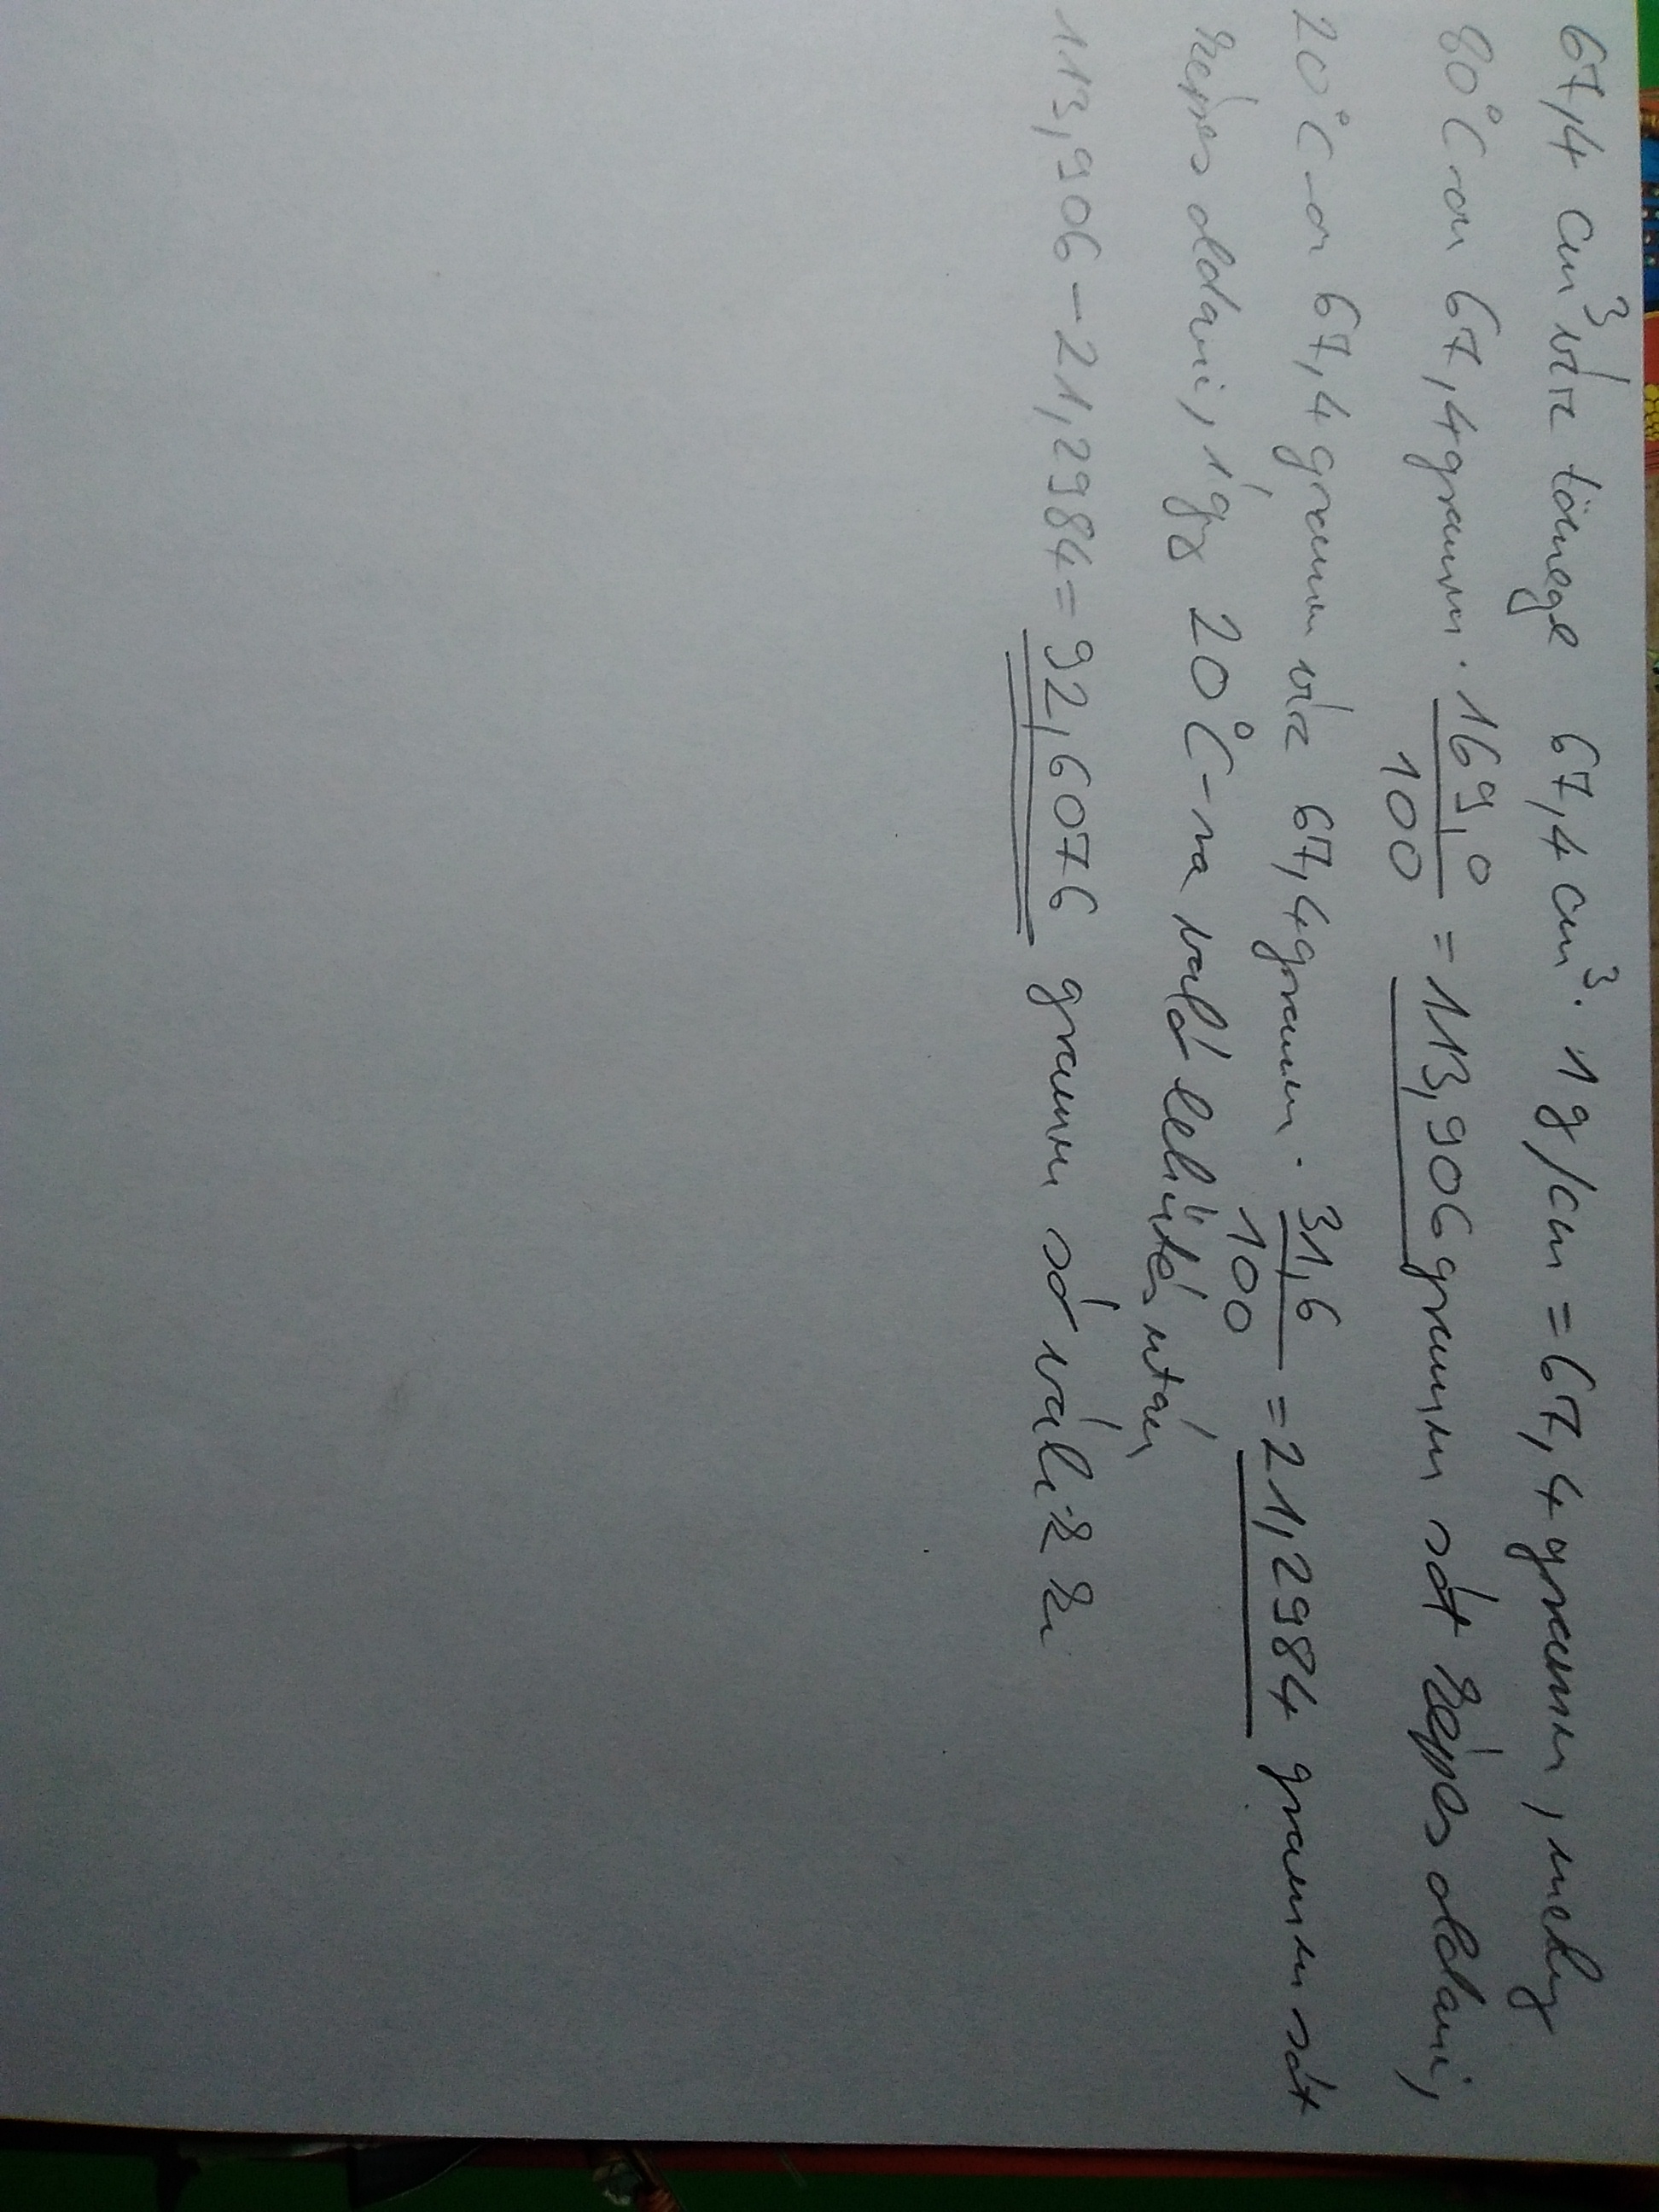 67,4 cm³ víz tömege 67,4 cm³ · 1 g/cm = 67,4 gramm, mely
80°C-on 67,4 gramm · 169,0/100 = 113,906 gramm sót képes oldani,
20°C-on 67,4 gramm víz 67,4 gramm · 31,6/100 = 21,2984 gramm sót
képes oldani, így 20°C-ra való lehűtés után
113,906 - 21,2984 = 92,6076 gramm só válik ki